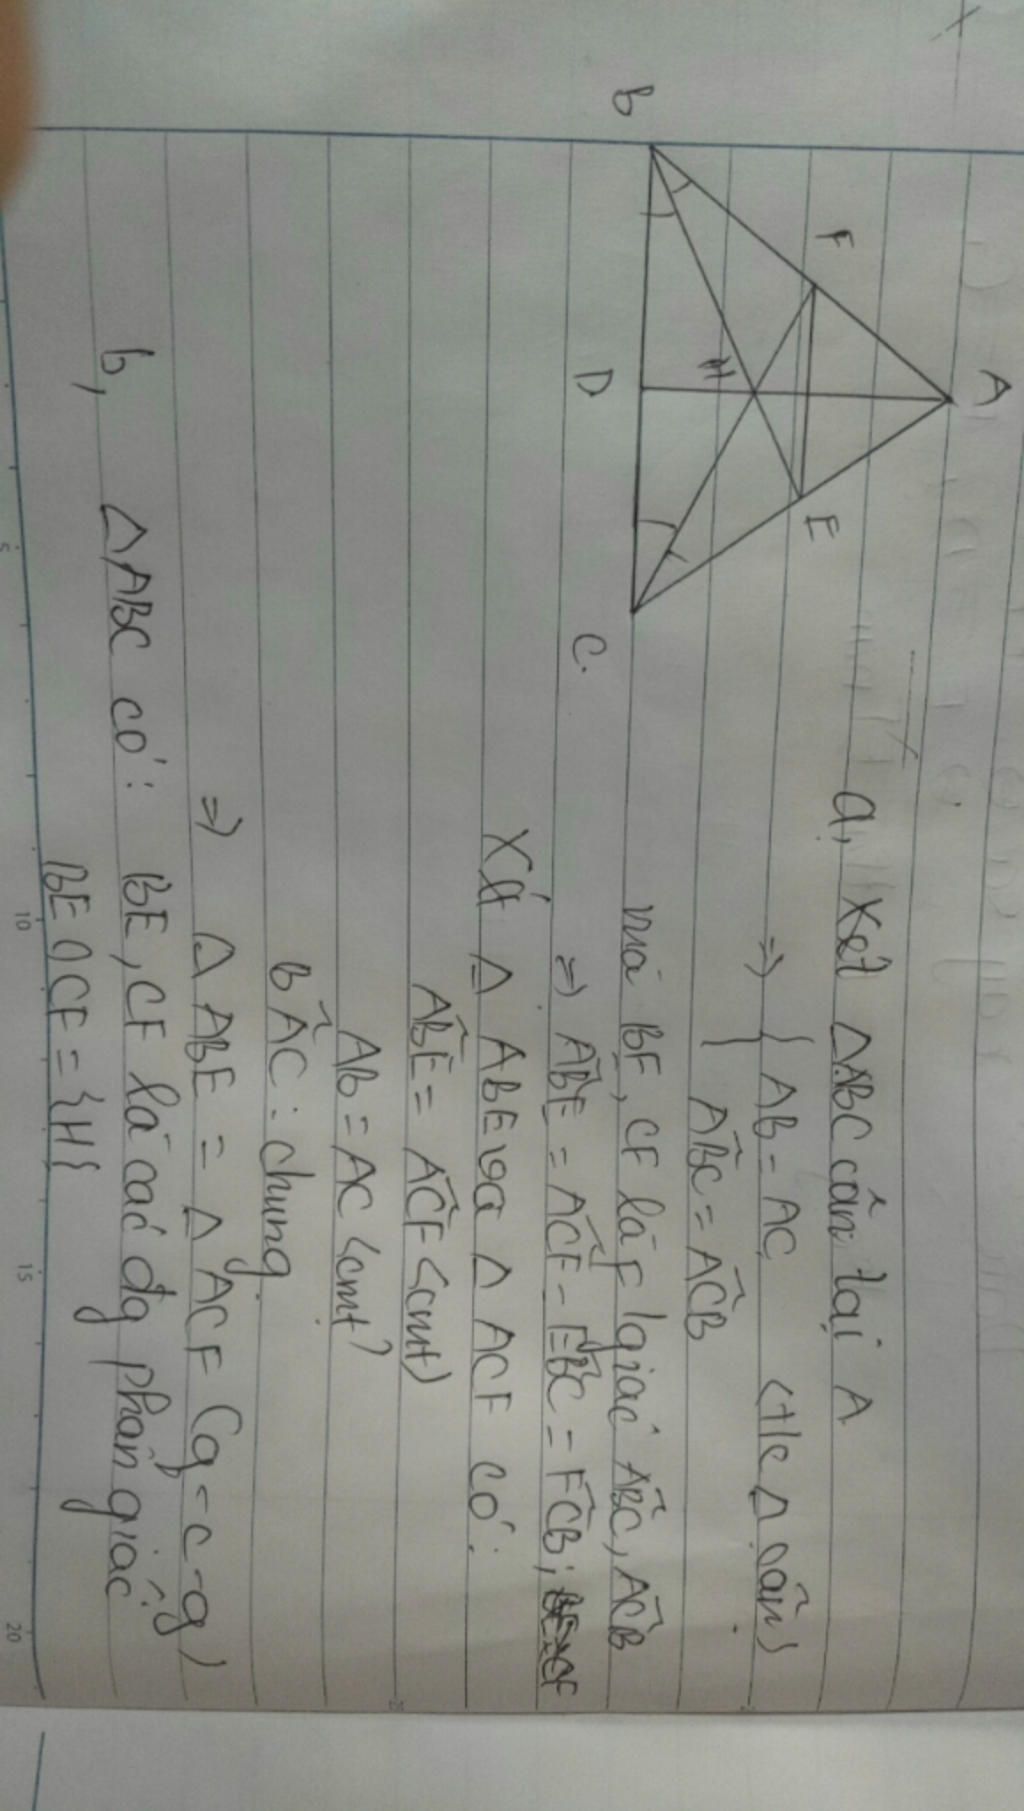 A
F
E
H
B
D
C.
a, Xét △ABC cân tại A
=> { AB = AC <t/c △ cân>
{ ABC = ACB
mà BE, CF là F/giác ABC, ACB
=> ABE = ACF = EBC = FCB;
Xét △ ABE và △ ACF có:
ABE = ACF <cmt>
AB = AC <cmt>
BAC: chung
=> △ ABE = △ ACF (g-c-g)
b, △ABC có: BE, CF là các đg phân giác
BE ∩ CF = {H}
5
10
15
20